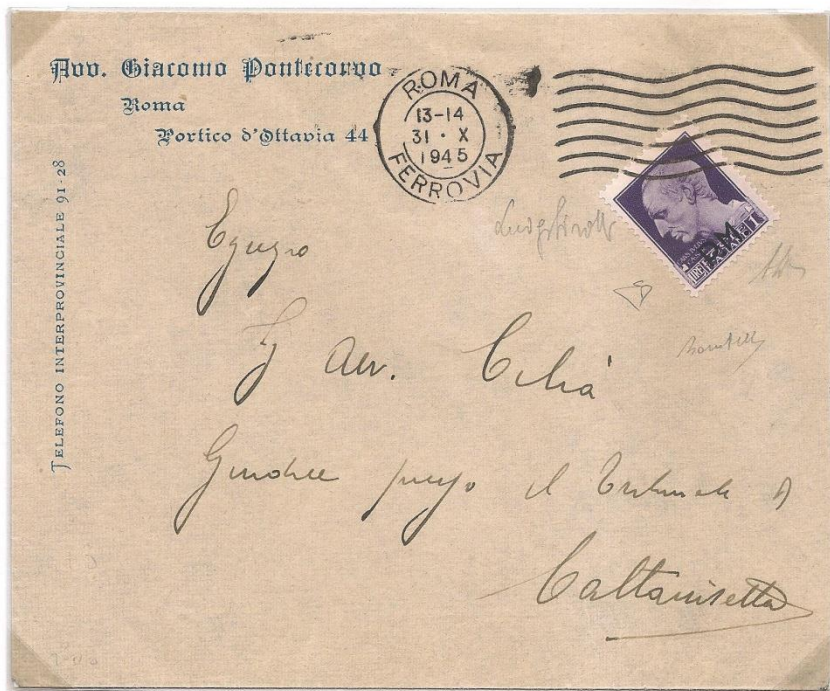 Avv. Giacomo Pontecorvo
Roma
Portico d'Ottavia 44
TELEFONO INTERPROVINCIALE 91-28
ROMA
13-14
31 · X
1945
FERROVIA
LIRE 1
P.M.
Egregio
Avv. Celià
Giudice presso il Tribunale di
Caltanissetta